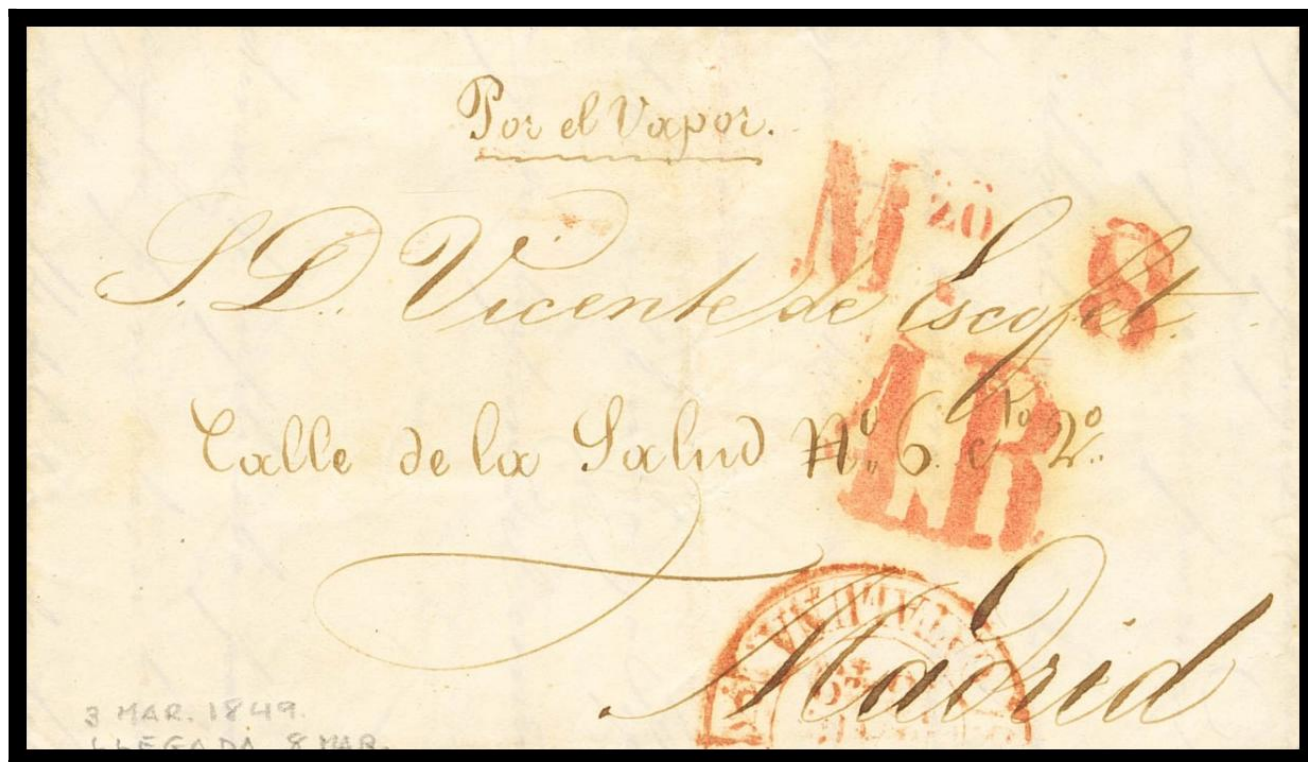 Por el Vapor.
Mzo 8
S. D. Vicente de Escofet.
1R
Calle de la Salud Nº 6. cto 2º
Madrid
3 MAR. 1849.
LLEGADA 8 MAR.